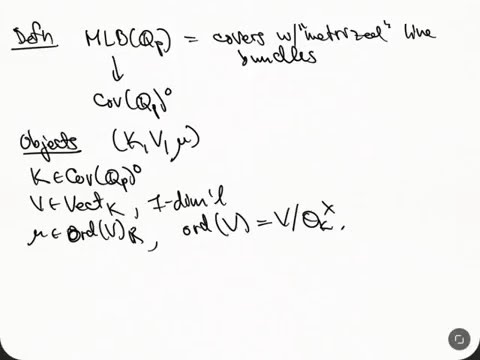 Defn MLB(Qp) = covers w/ "metrized" line
bundles
↓
Cov(Qp)°
Objects (K, V, μ)
K ∈ Cov(Qp)°
V ∈ Vect_K, 1-dim'l
μ ∈ Ord(V)_R, ord(V) = V/O_K^×.